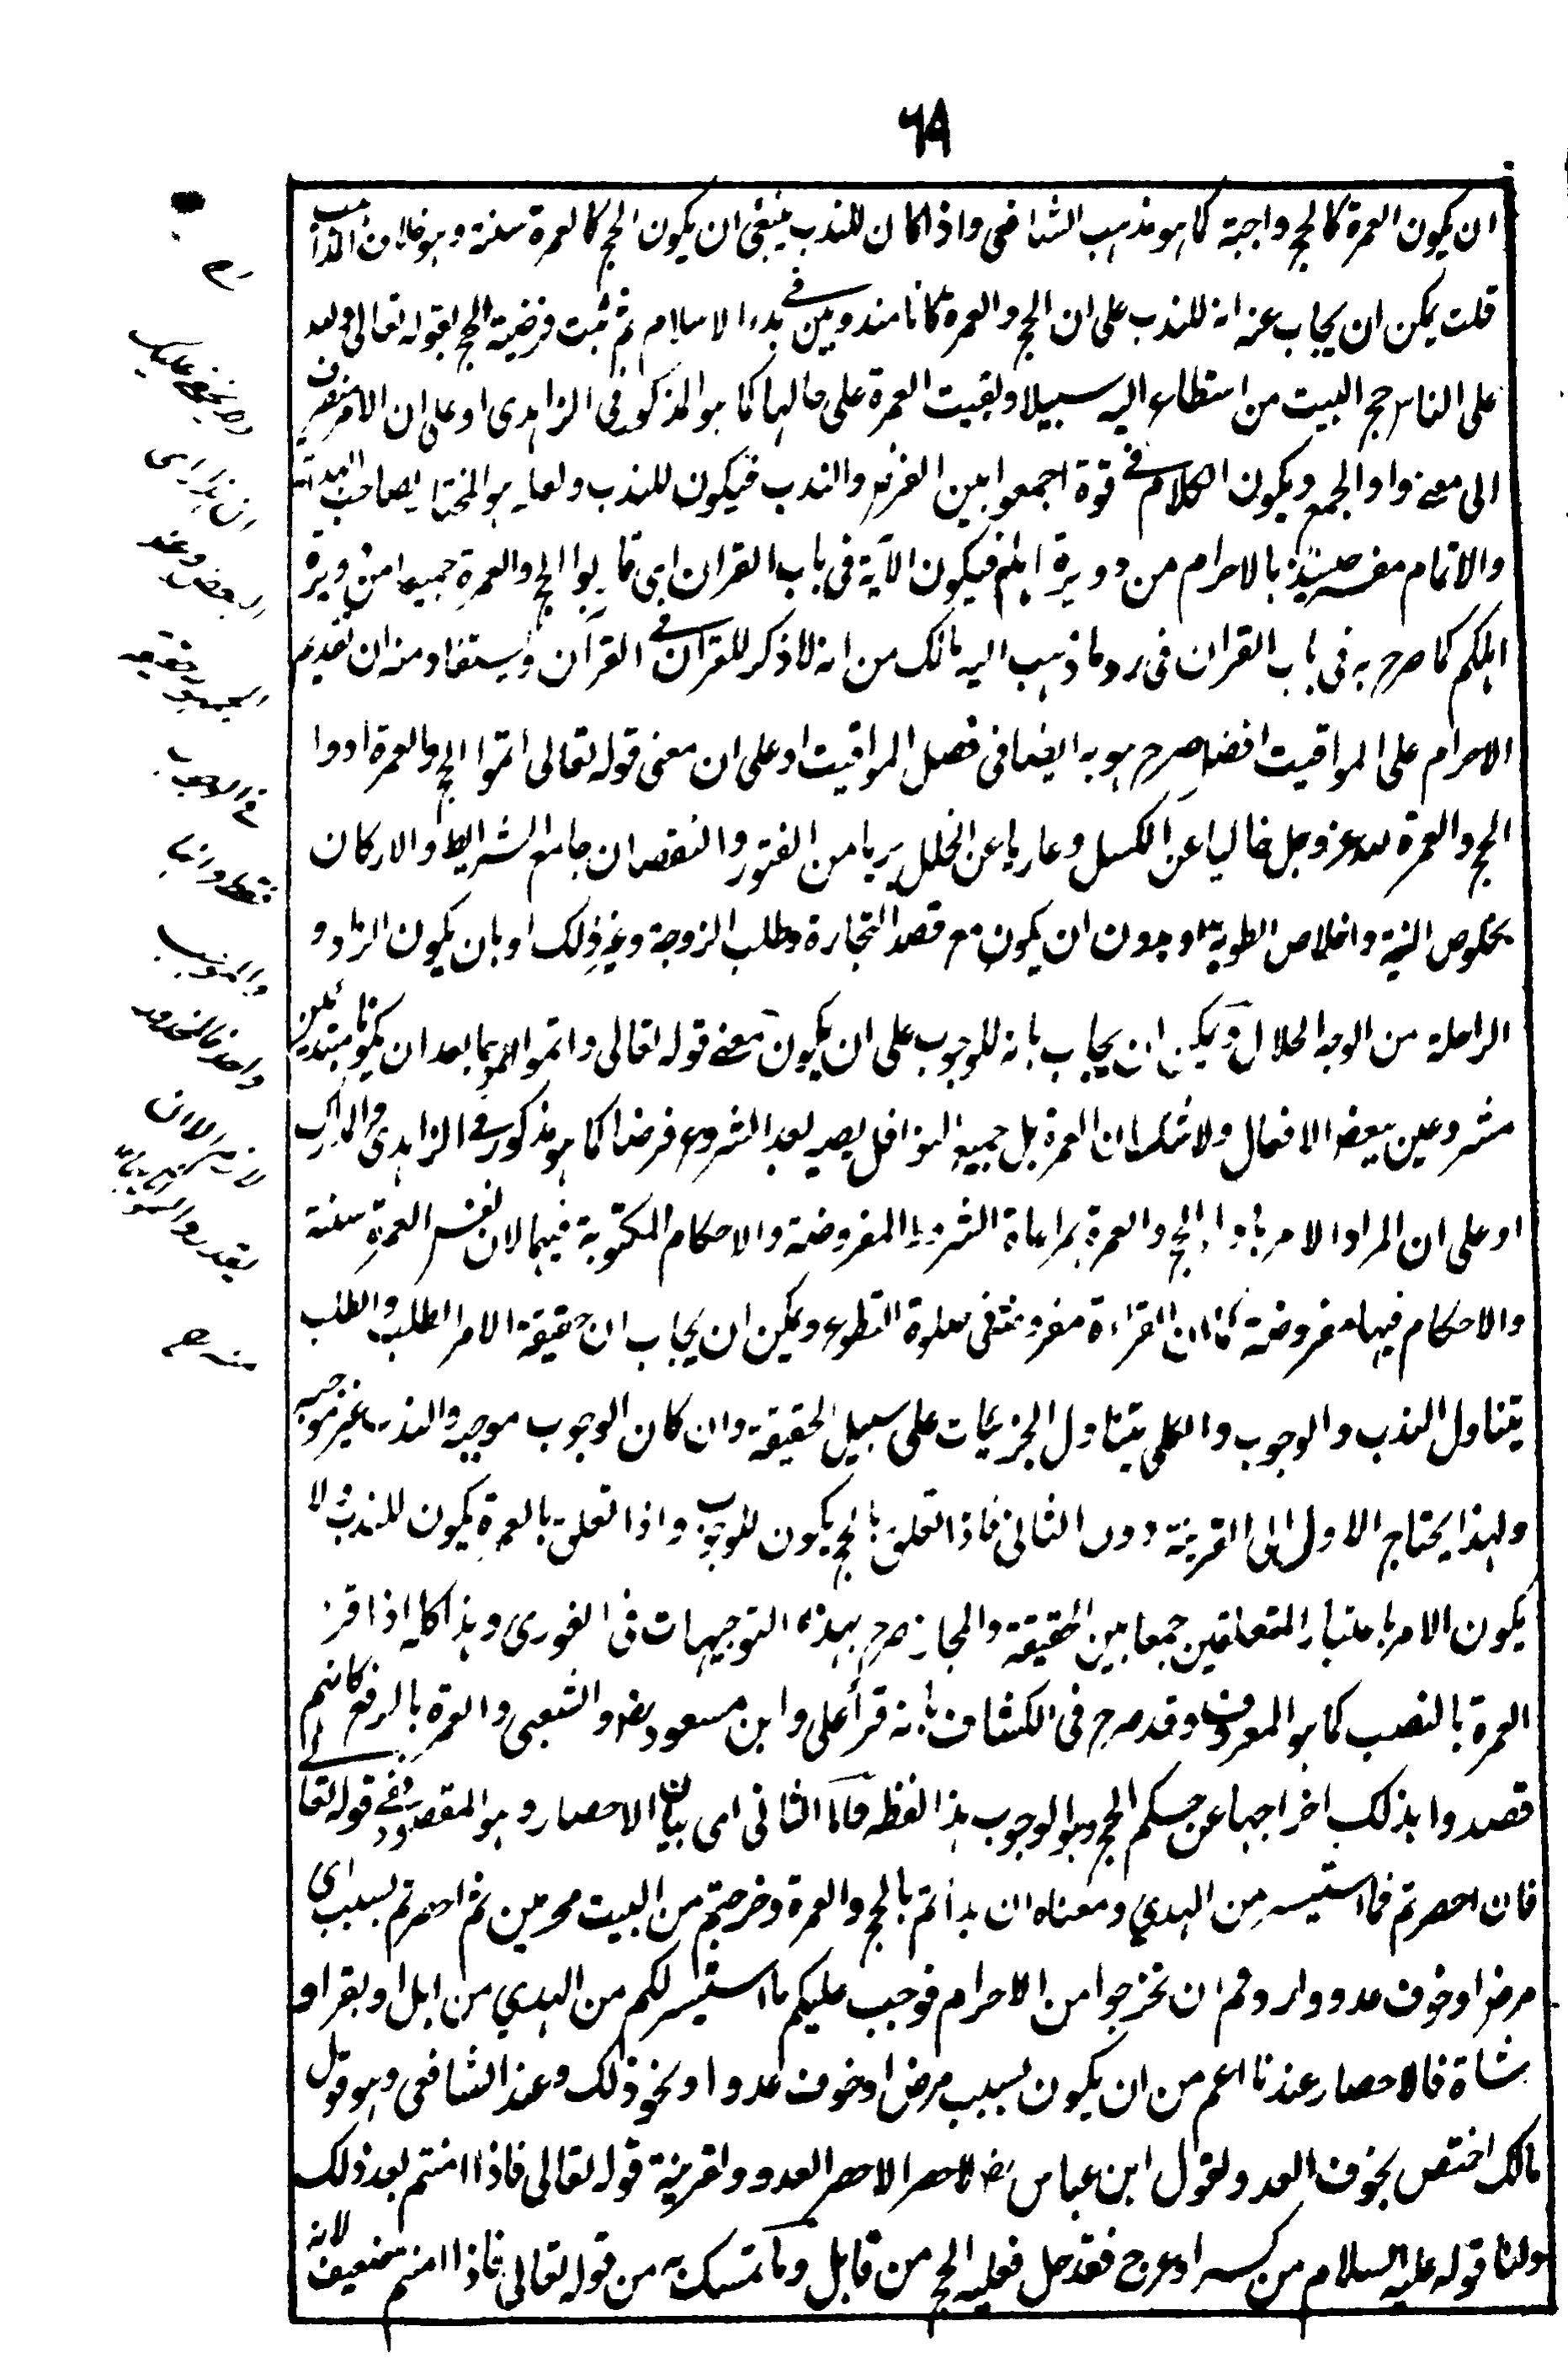 ٦٨
ان يكون العمرة كالحج واجبة كما هو مذهب الشافعي واذا كان للندب ينبغي ان يكون الحج كالعمرة سنة وهو خلاف المذهب
قلت يمكن ان يجاب عنه انه للندب على ان الحج والعمرة كانا مندوبين في بدء الاسلام ثم ثبت فرضية الحج بقوله تعالى ولله
على الناس حج البيت من استطاع اليه سبيلا وبقيت العمرة على حالها كما هو المذكور في الزاهدى او على ان الامر منصرف
الى معنى واو الجمع ويكون الكلام في قوة اجمعوا بين الفرض والندب فيكون للندب ولعله هو المختار لصاحب الهداية
والاتمام مفسر حينئذ بالاحرام من دويرة اهلهم فيكون الآية في باب القران اى تأهبوا الحج والعمرة جميعا من دويرة
اهلكم كما صرح به في باب القران في رد ما ذهب اليه مالك من انه لا ذكر للقران في القرآن ويستفاد منه ان تقديم
الاحرام على المواقيت افضل صرح هو به ايضا في فصل المواقيت او على ان معنى قوله تعالى اتموا الحج والعمرة ادوا
الحج والعمرة لله عز وجل خاليا عن الكسل وعاريا عن الخلل بريا من الفتور والنقصان جامع الشرايط والاركان
بخلوص النية واخلاص الطوية او بدون ان يكون مع قصد التجارة وطلب الزوجة وغير ذلك او بان يكون الزاد و
الراحلة من الوجه الحلال ويمكن ان يجاب بانه للوجوب على ان يكون معنى قوله تعالى واتموا اتموهما بعد ان تكونا مبتدئين
مشروعين ببعض الافعال ولا شك ان العمرة بل جميع النوافل يصير بعد الشروع فرضا كما هو مذكور في الزاهدى والمدارك
او على ان المراد الامر باداء الحج والعمرة بمراعاة الشروط المفروضة والاحكام المكتوبة فيهما لان نفس العمرة سنة
والاحكام فيها مفروضة كما ان القراءة مفروضة في صلوة التطوع ويمكن ان يجاب ان حقيقة الامر الطلب والطلب
يتناول الندب والوجوب والكلى يتناول الجزئيات على سبيل الحقيقة وان كان الوجوب موجبه والندب غير موجبه
ولهذا يحتاج الاول الى القرينة دون الثانى فاذا تعلق بالحج يكون للوجوب واذا تعلق بالعمرة يكون للندب ولا
يكون الامر باعتبار المتعلقين جمعا بين الحقيقة والمجاز صرح بهذه التوجيهات في الغورى وهذا كله اذا قرئ
العمرة بالنصب كما هو المعروف وقد صرح في الكشاف بانه قرأ على وابن مسعود رض والشعبى والعمرة بالرفع كانهم
قصدوا بذلك اخراجها عن حكم الحج وهو الوجوب هذا لفظه فاما الثانى اى بيان الاحصار وهو المقصود ففي قوله تعالى
فان احصرتم فما استيسر من الهدي ومعناه ان بدأتم بالحج والعمرة وخرجتم من البيت محرمين ثم احصرتم بسبب اى
مرض او خوف عدو واردتم ان تخرجوا من الاحرام فوجب عليكم ما استيسر لكم من الهدي من ابل او بقر او
شاة فالاحصار عندنا اعم من ان يكون بسبب مرض او خوف عدو او نحو ذلك وعند الشافعى وهو قول
مالك اختص بخوف العدو لقول ابن عباس رض لا حصر الا حصر العدو ولقرينة قوله تعالى فاذا امنتم بعد ذلك
ولنا قوله عليه السلام من كسر او عرج فقد حل فعليه الحج من قابل وما تمسك به من قوله تعالى فاذا امنتم ضعيف لانه
ولا يخفى عليك
البعض وعند
في الوجوب